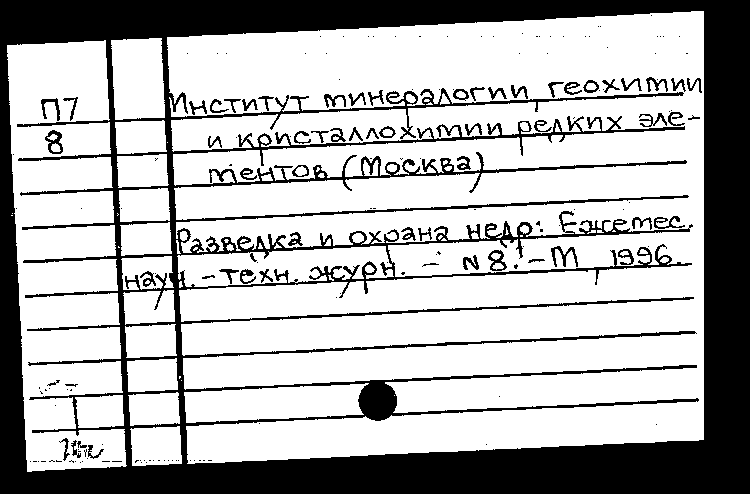 П7
8
Институт минералогии, геохимии
и кристаллохимии редких эле-
ментов (Москва)
Разведка и охрана недр: Ежемес.
науч.-техн. журн. - N 8. - М, 1996.